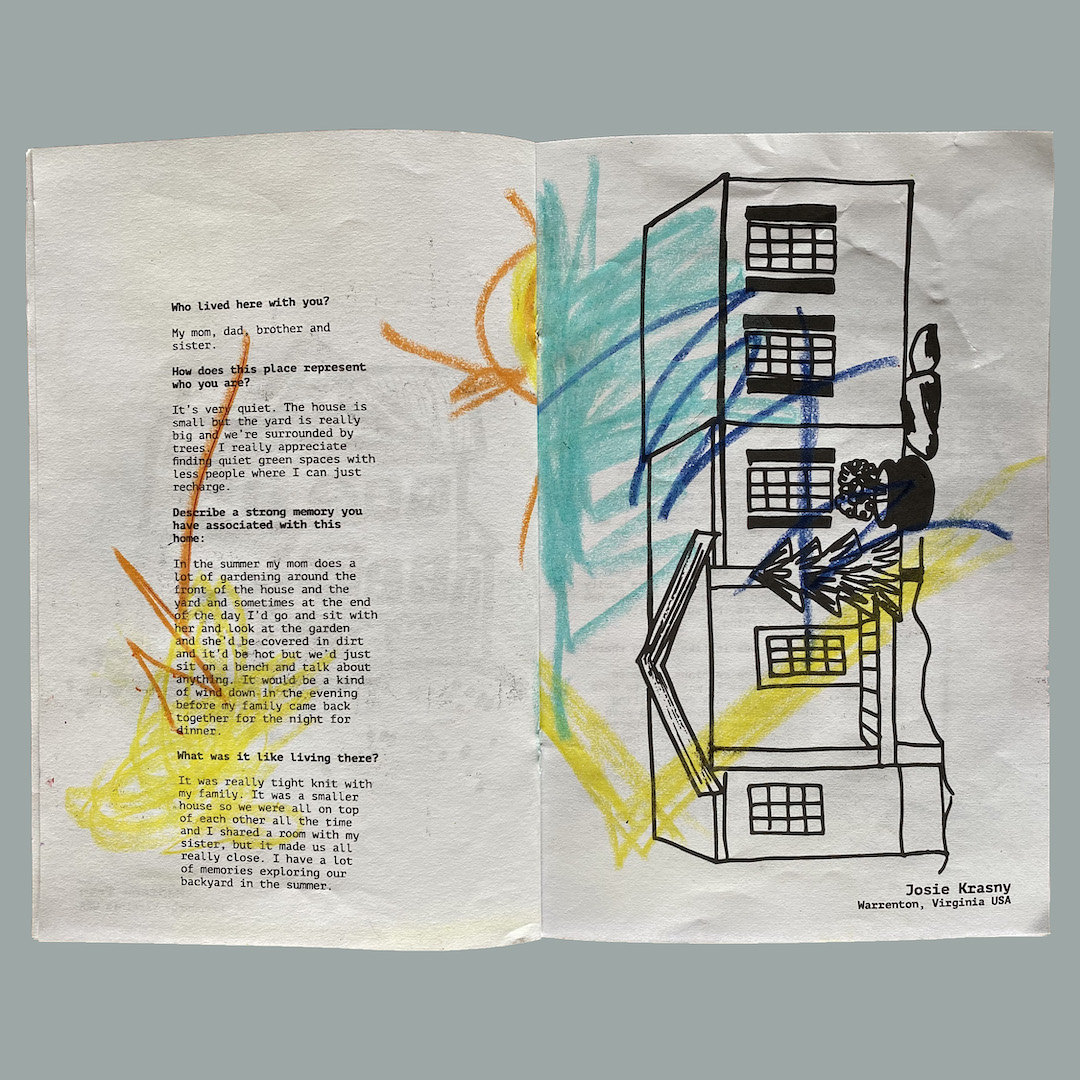 Who lived here with you?
My mom, dad, brother and
sister.
How does this place represent
who you are?
It's very quiet. The house is
small but the yard is really
big and we're surrounded by
trees. I really appreciate
finding quiet green spaces with
less people where I can just
recharge.
Describe a strong memory you
have associated with this
home:
In the summer my mom does a
lot of gardening around the
front of the house and the
yard and sometimes at the end
of the day I'd go and sit with
her and look at the garden
and she'd be covered in dirt
and it'd be hot but we'd just
sit on a bench and talk about
anything. It would be a kind
of wind down in the evening
before my family came back
together for the night for
dinner.
What was it like living there?
It was really tight knit with
my family. It was a smaller
house so we were all on top
of each other all the time
and I shared a room with my
sister, but it made us all
really close. I have a lot
of memories exploring our
backyard in the summer.
Josie Krasny
Warrenton, Virginia USA